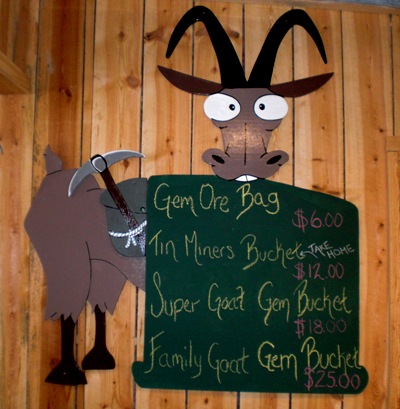 Gem Ore Bag
$6.00
Tin Miners Bucket TAKE HOME
$12.00
Super Goat Gem Bucket
$18.00
Family Goat Gem Bucket
$25.00